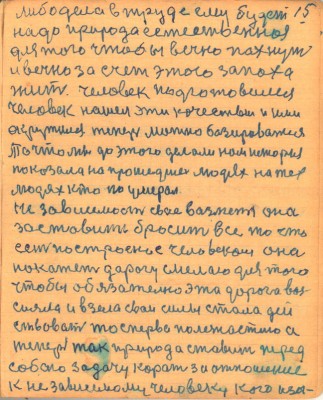 либо дела в труде ему будет 15
надо природа естественная
для того чтобы вечно пахнут
и вечно за счет этого запаха
жить. человек подготовился
человек нашел эти качества и ими
окружился теперь можно базироваться
То что мы до этого делали нам история
показала на прошедших людях на тех
людях кто по умерал.
Не зависимость свое возмет она
заставит бросит все то что
ест построено человеком она
покажет дарогу смелаю для того
чтобы обязателно эта дорога вос
сияла и взела свои силы стала дей
ствоват то сперво полностию а
теперь так природа ставит перед
собою задачу корат за отношение
к не зависимому человеку кого изы-